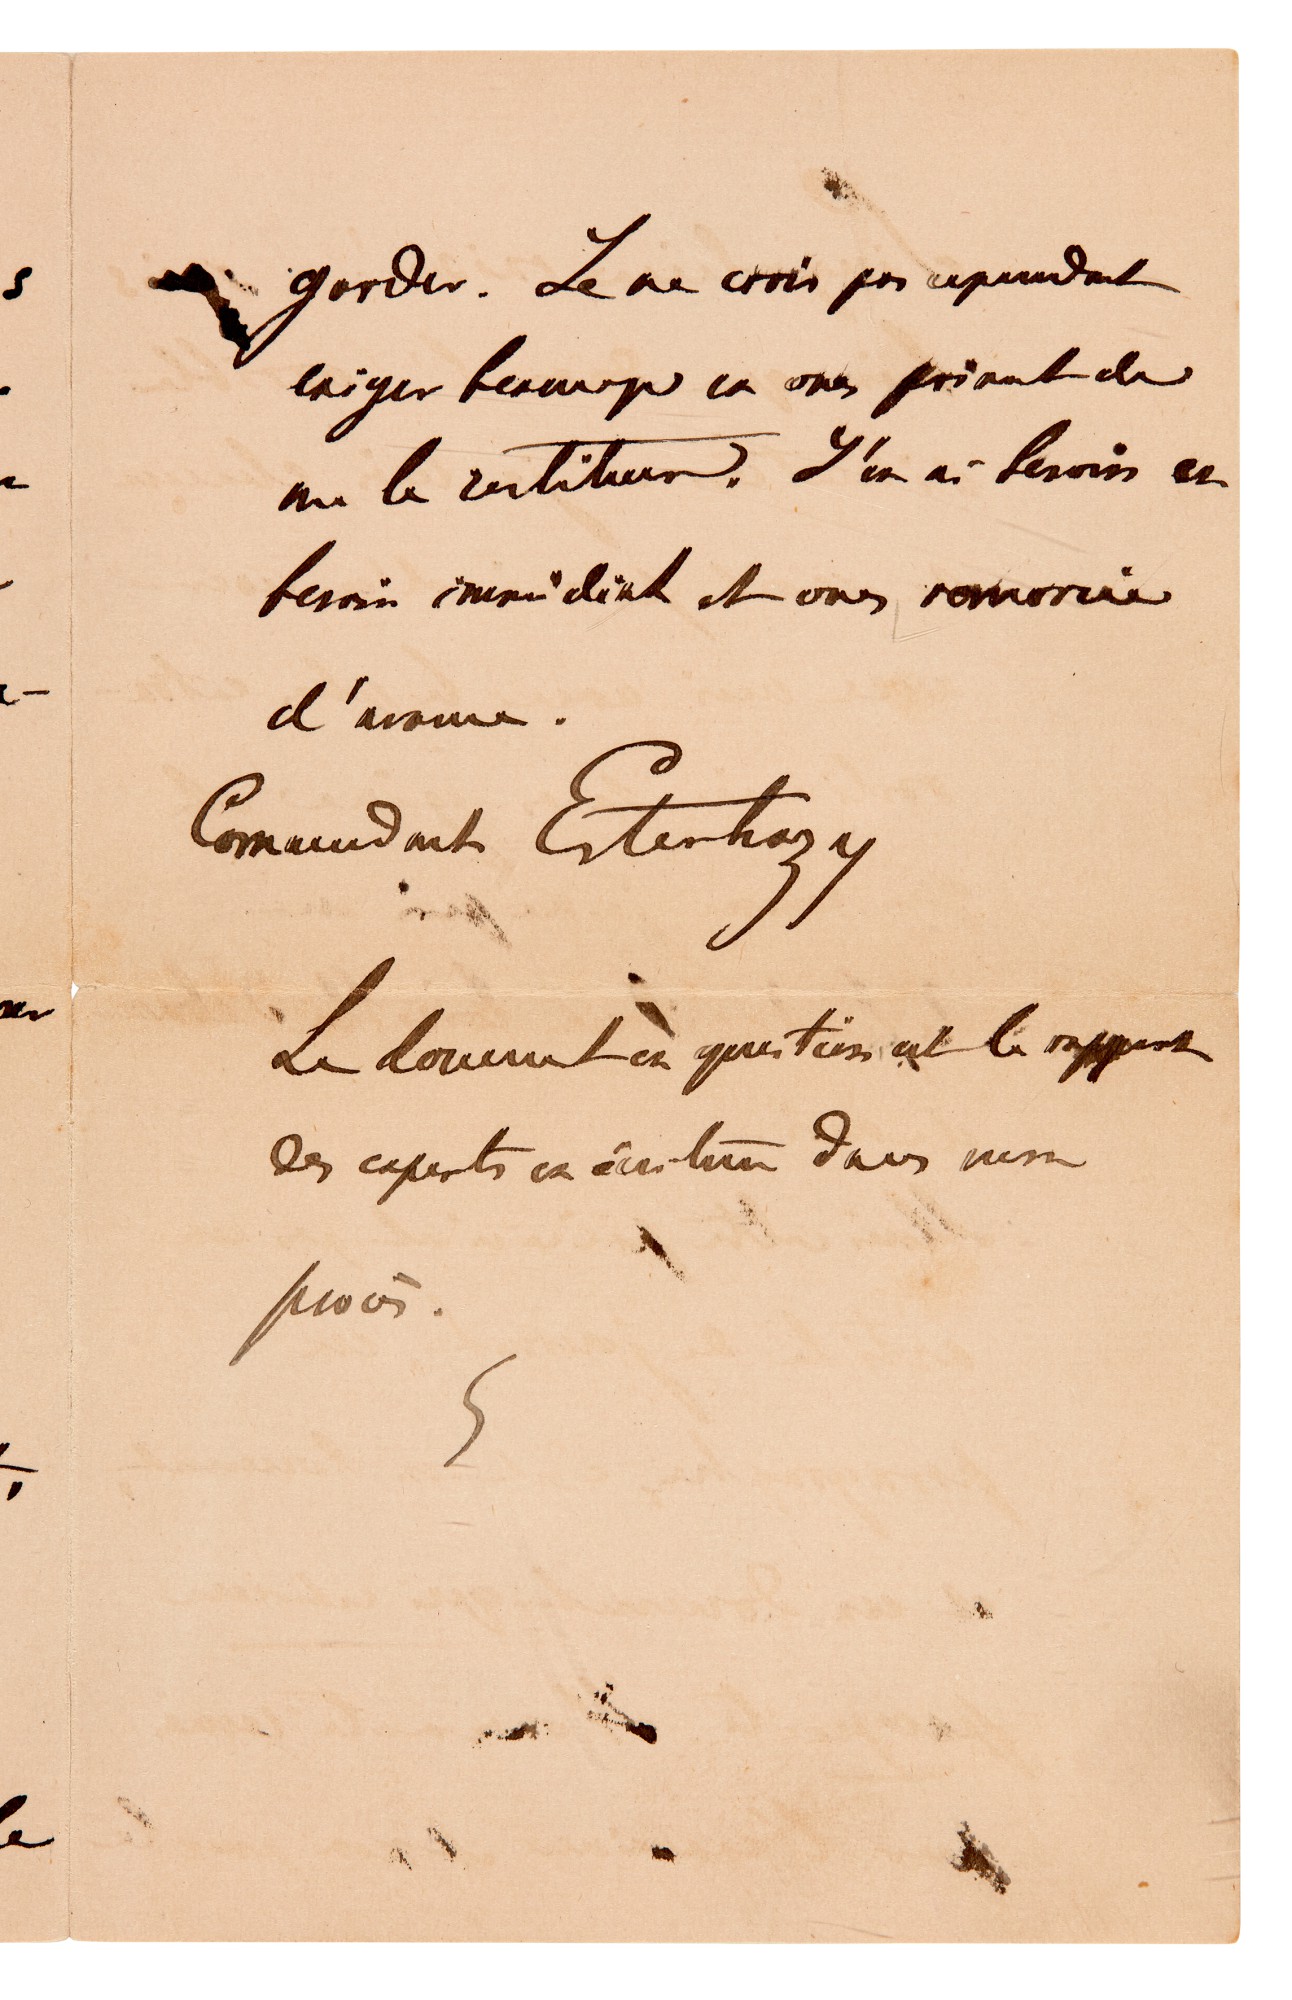 garder. Je ne crois pas cependant
exiger beaucoup en vous priant de
me le restituer. J'en ai besoin et
besoin immédiat et vous remercie
d'avance.
Commandant Esterhazy
Le document en question est le rapport
des experts en écriture dans mon
procès.